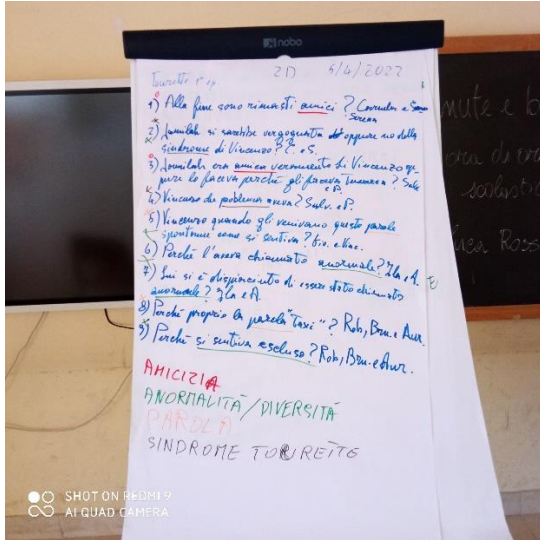 nobo
2D 6/4/2022
1) Alla fine sono rimasti amici? Carmela e
Serena
2) Jamilah si sarebbe vergognata oppure no della
sindrome di Vincenzo? C. e S.
3) Jamilah era amica veramente di Vincenzo op-
pure lo faceva perché gli faceva tenerezza? Salv.
e P.
4) Vincenzo che problema aveva? Salv. e P.
5) Vincenzo quando gli venivano queste parole
spontanee come si sentiva? Gio. e Vinc.
6) Perché l'aveva chiamato anormale? Ila e A.
7) Lui si è dispiaciuto di essere stato chiamato
anormale? Ila e A.
8) Perché proprio la parola "Taxi"? Rob, Bru. e Aur.
9) Perché si sentiva escluso? Rob, Bru. e Aur.
AMICIZIA
ANORMALITÀ/DIVERSITÀ
PAROLA
SINDROME TOURETTE
mute e b
scolasti
Ross
SHOT ON REDMI 9
AI QUAD CAMERA